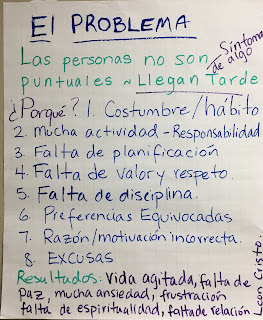 El PROBLEMA
Las personas no son Síntoma de algo
puntuales ~ Llegan Tarde
¿Porqué? 1. Costumbre/hábito
2. Mucha actividad - Responsabilidad
3. Falta de planificación
4. Falta de valor y respeto.
5. Falta de disciplina.
6. Preferencias Equivocadas
7. Razón/motivación incorrecta.
8. EXCUSAS
Resultados: vida agitada, falta de
paz, mucha ansiedad, frustración
falta de espiritualidad, falta de relación
con Cristo.